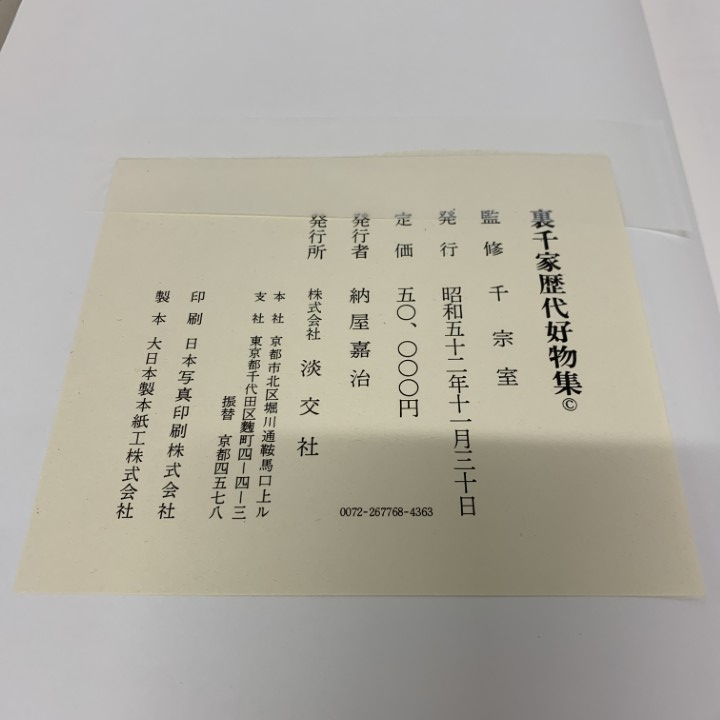 裏千家歴代好物集©
監修 千宗室
発行 昭和五十二年十一月三十日
定価 五〇、〇〇〇円
発行者 納屋嘉治
発行所 株式会社 淡交社
本社 京都市北区堀川通鞍馬口上ル
支社 東京都千代田区麴町四ー四ー三
振替 京都四五七八
印刷 日本写真印刷株式会社
製本 大日本製本紙工株式会社
0072-267768-4363